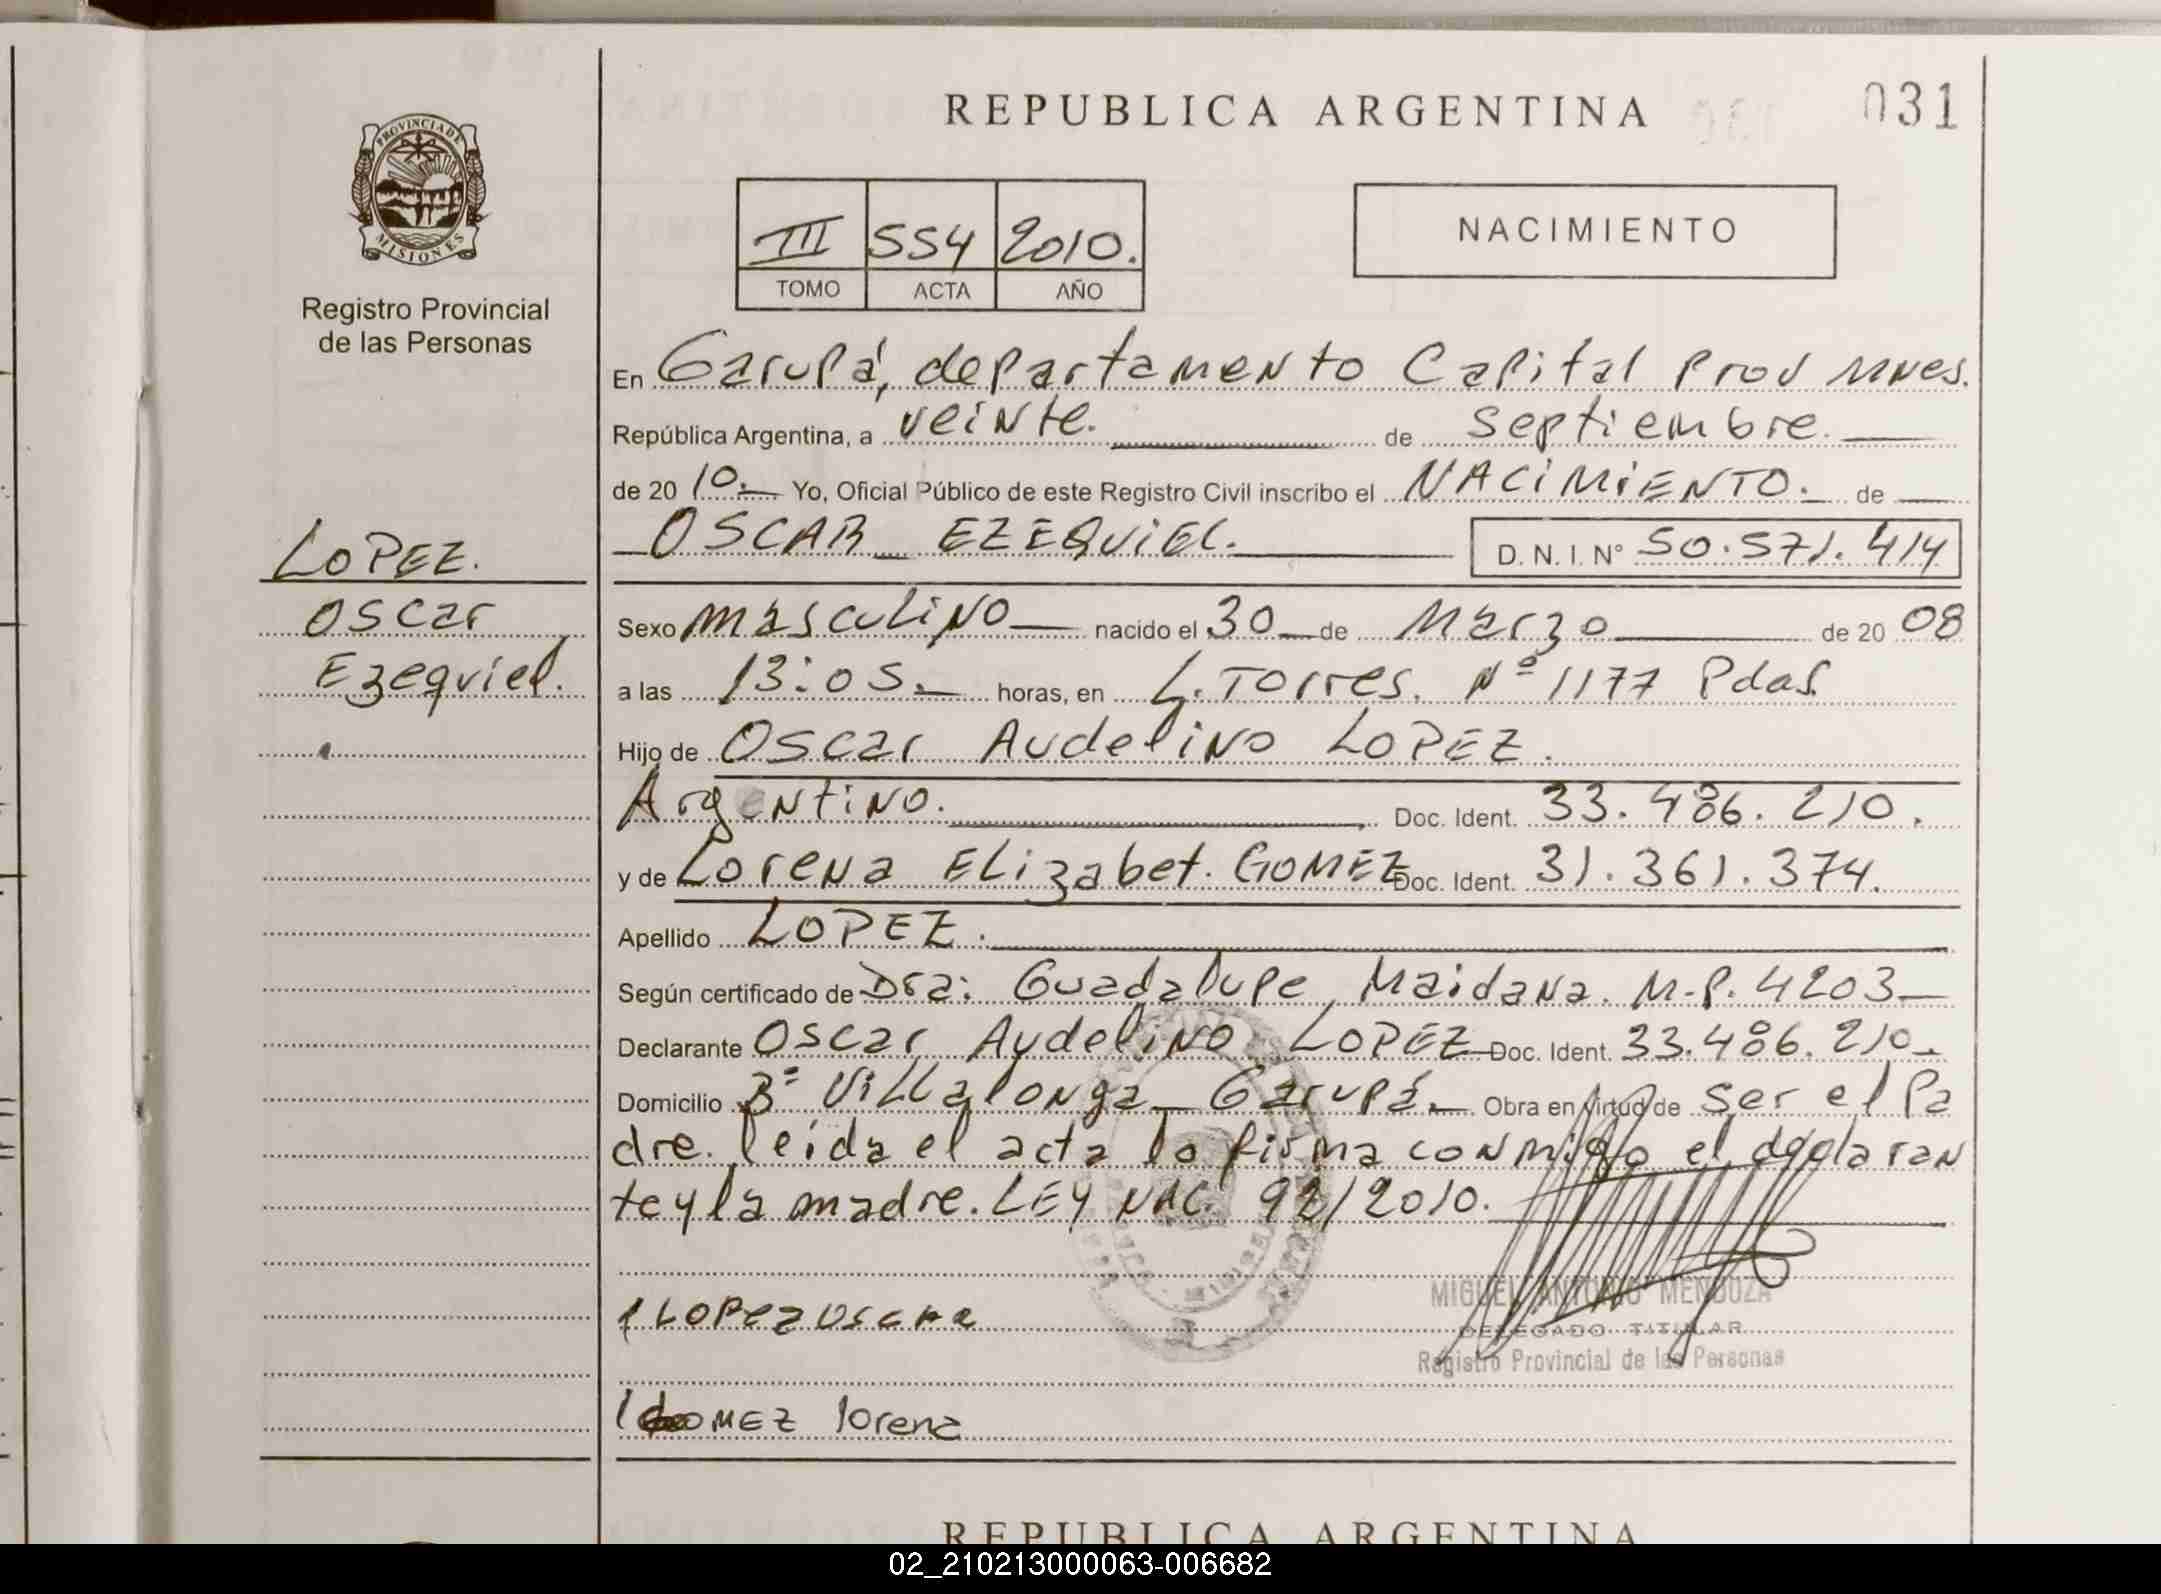 REPUBLICA ARGENTINA
031
PROVINCIA DE
MISIONES
Registro Provincial
de las Personas
III 554 2010.
TOMO ACTA AÑO
NACIMIENTO
En Garupá, departamento Capital Prov Mnes.
República Argentina, a veinte. de septiembre.
de 2010. Yo, Oficial Público de este Registro Civil inscribo el NACIMIENTO. de
OSCAR EZEQUIEL. D. N. I. N° 50.571.414
LOPEZ.
Oscar
Ezequiel.
Sexo masculino nacido el 30 de Marzo de 2008
a las 13:05. horas, en L. Torres. Nº 1177 Pdas.
Hijo de Oscar Audelino LOPEZ.
Argentino. Doc. Ident. 33.486.210.
y de Lorena Elizabet. GOMEZ Doc. Ident. 31.361.374.
Apellido LOPEZ.
Según certificado de Dra: Guadalupe Maidana. M.P. 4203
Declarante Oscar Audelino LOPEZ Doc. Ident. 33.486.210
Domicilio Bº Villalonga Garupá. Obra en virtud de ser el Pa
dre. leida el acta la firma conmigo el declaran
te y la madre. LEY NAC. 92/2010.
LOPEZ OSCAR
MIGUEL ANTONIO MENDOZA
DELEGADO TITULAR
Registro Provincial de las Personas
GOMEZ lorena
REPUBLICA ARGENTINA
02_210213000063-006682